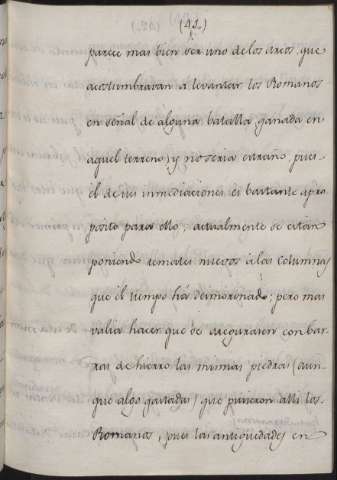 (41)
parece mas bien ser uno de los arcos que
acostumbravan a levantar los Romanos
en señal de alguna batalla ganada en
aquel terreno; y no seria extraño, pues
el de sus inmediaciones es bastante apro
posito para ello; actualmente se estan
poniendo remates nuevos à las columnas
que el tiempo hà desmoronado; pero mas
valia hacer que se asegurasen con bar
ras de hierro las mismas piedras (aun
que algo gastadas) que pusieron alli los
Romanos, pues las antiguedades en